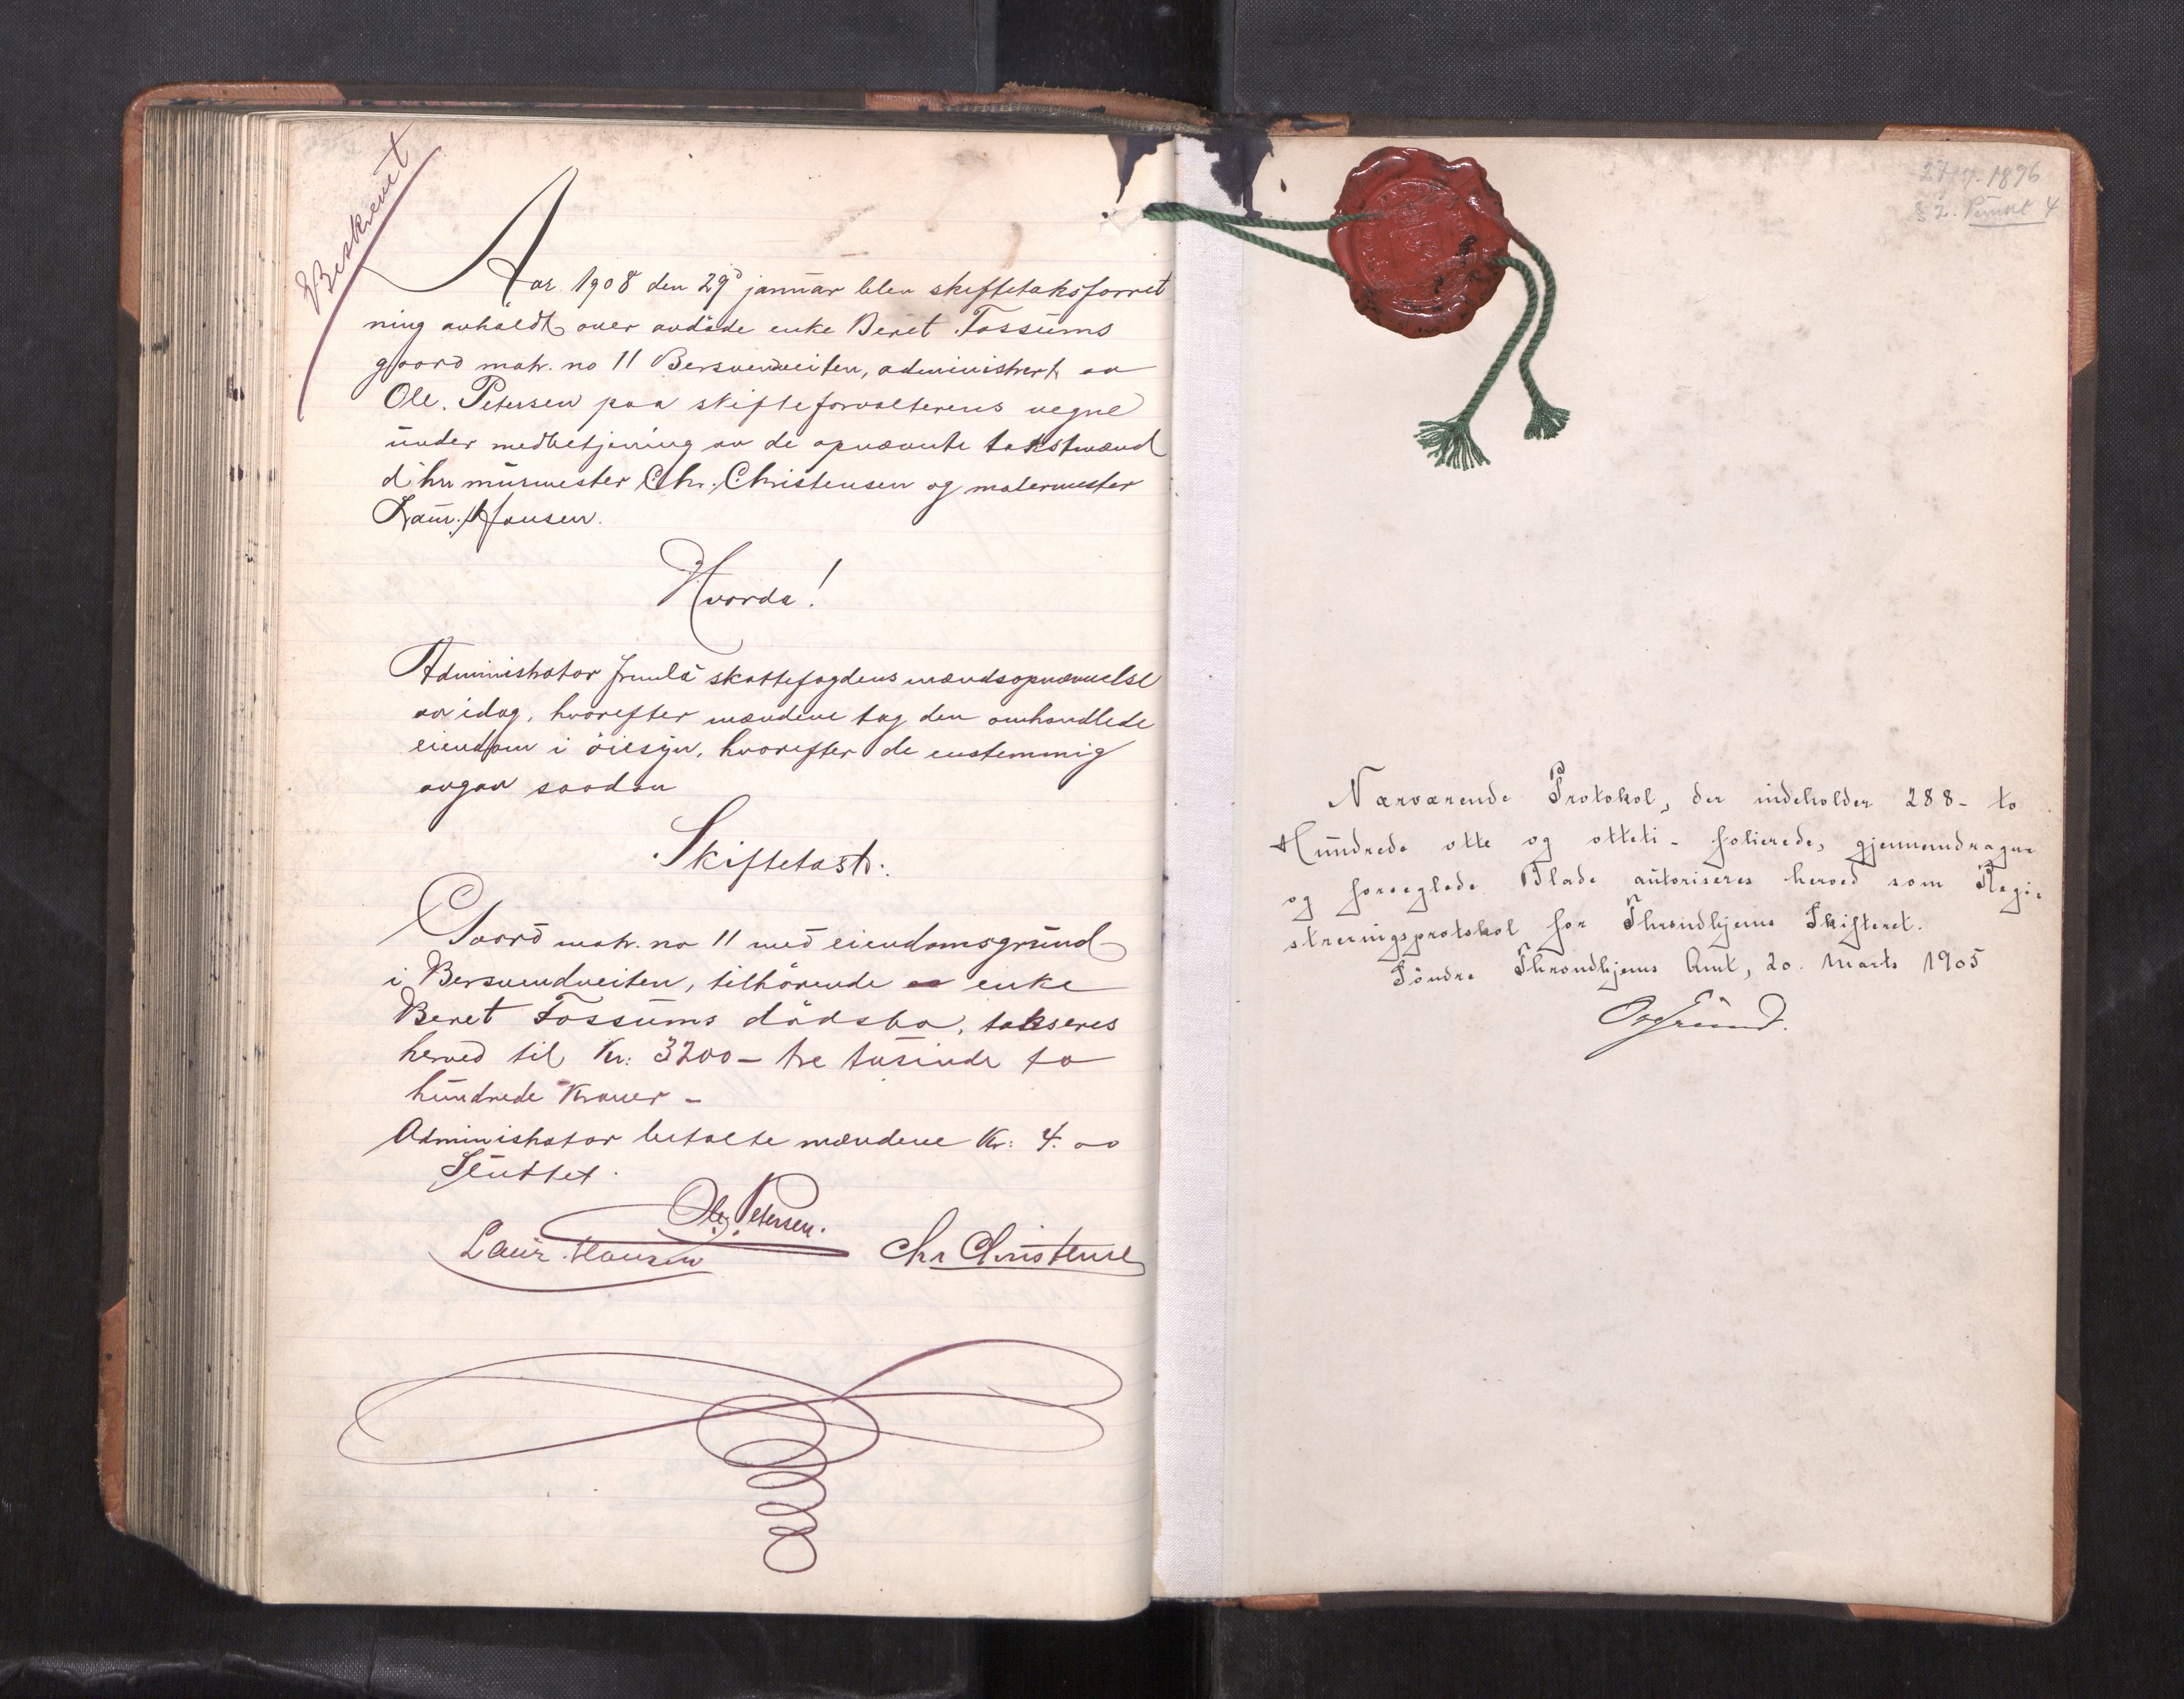 Beskrevet
Aar 1908 den 29d januar blev skiftetaksforret
ning avholdt over avdöde enke Beret Fossums
gaard matr. no 11 Bersvendveiten, administrert av
Ole. Petersen paa skifteforvalterens vegne
under medbetjening av de opnævnte takstmænd
d'hrr murmester Chr. Christensen og malermester
Laur. Hansen.
Hvorda!
Administrator freml. skattefogdens mændsopnævnelse
av idag, hvorefter mændene tog den omhandlede
eiendom i öiesyn, hvorefter de enstemmig
avgav saadan
Skiftetakst:
Gaard matr. no 11 med eiendomsgrund
i Bersvendveiten, tilhörende enke
Beret Fossums dödsbo, takseres
herved til Kr: 3200 – tre tusinde to
hundrede Kroner –
Administrator betalte mændene Kr: 4.00
Sluttet.
Ole Petersen.
Laur. Hansen Chr Christensen
27/7. 1896
§ 2. Punkt 4
Nærværende Protokol, der indeholder 288 – to
Hundrede otte og otteti – folierede, gjennemdragne
og forseglede Blade autoriseres herved som Regi-
streringsprotokol for Throndhjems Skifteret.
Söndre Throndhjems Amt, 20. Marts 1905